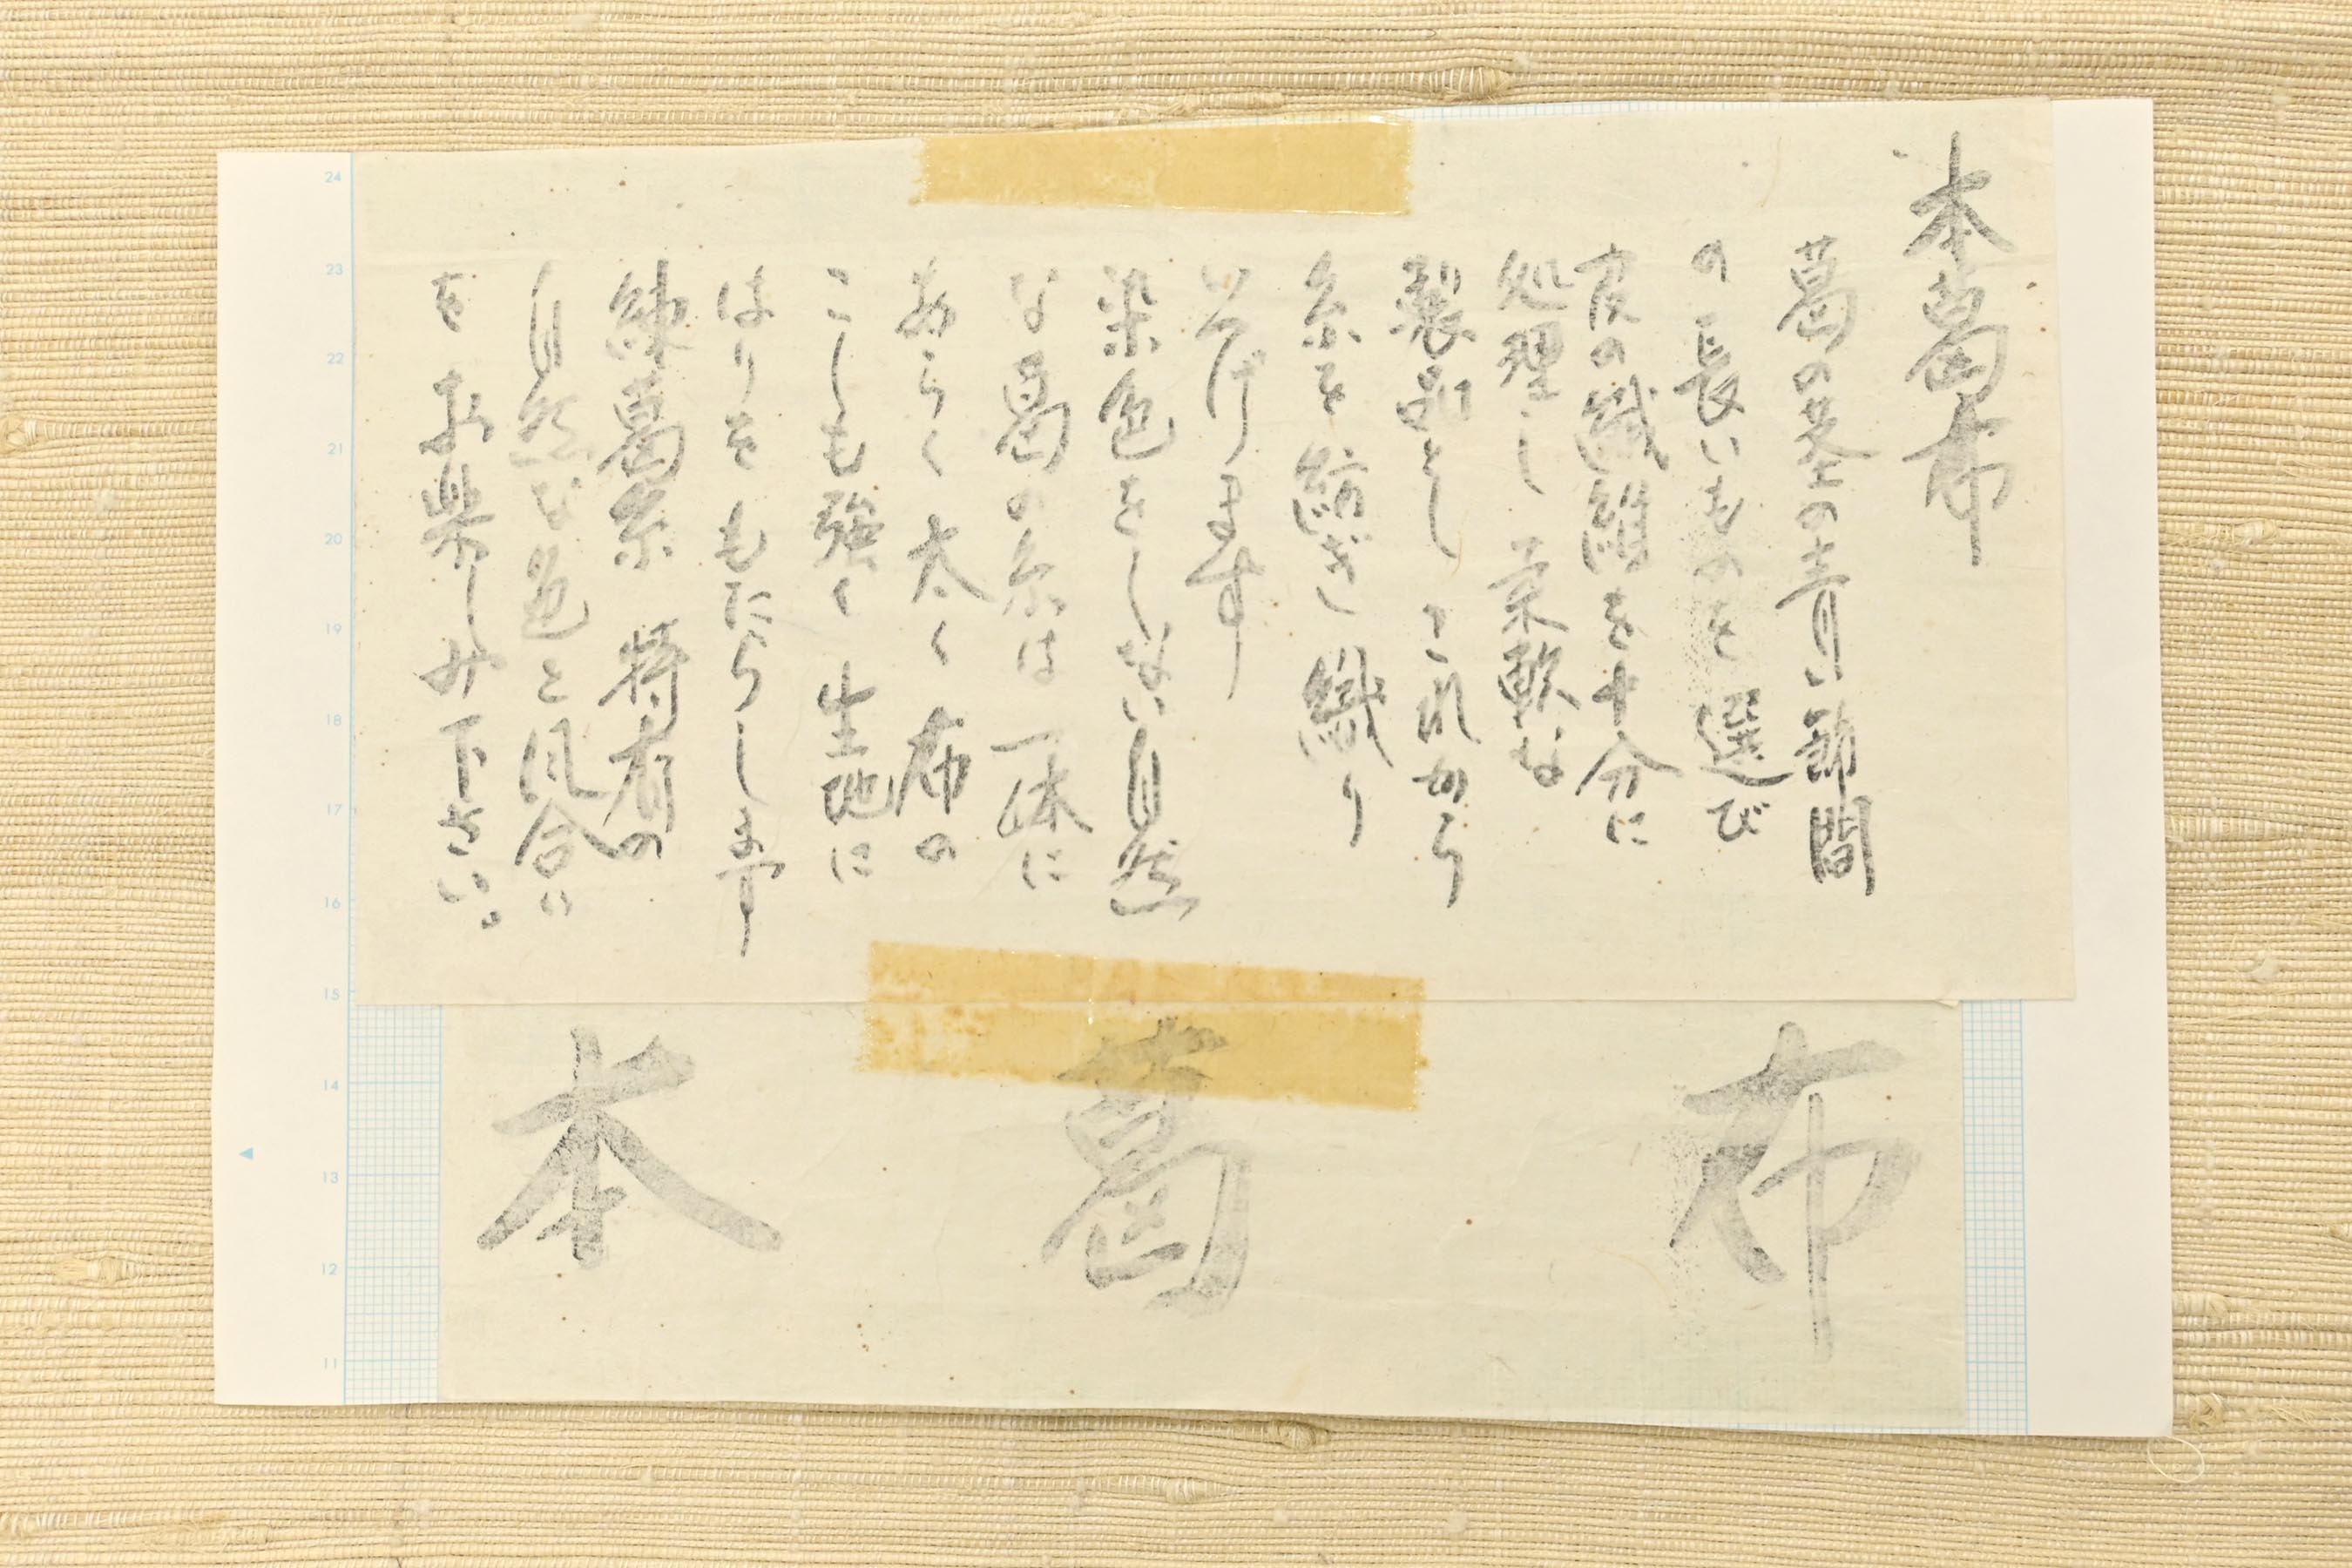 本葛布
葛の茎の青い節間
の長いものを選び
皮の繊維を十分に
処理し 柔軟な
製品とし これから
糸を紡ぎ 織り
げます
染色をしない自然
な葛の糸は 一体に
あらく 太く 布の
こしも強く 生地に
はりを もたらします
練葛糸 特有の
自然な色と風合い
を お楽しみ下さい。
本 葛 布
24
23
22
21
20
19
18
17
16
15
14
13
12
11